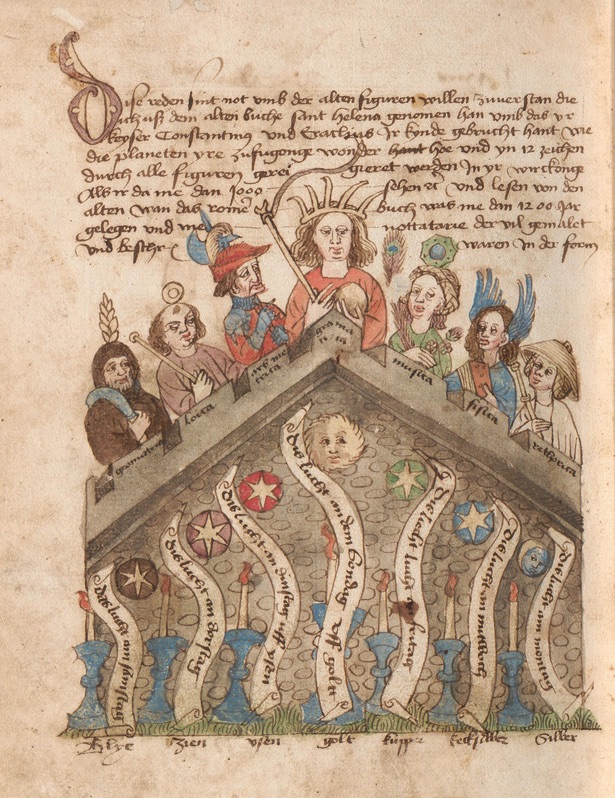 Dise reden sint not vmb der alten figuren willen zuuerstan die
ich vß dem alten buche sant helena genomen han vmb das yr
keyser Constantinus vnd Eraclius Jr kinde gebrucht hant wie
die planeten yre zufugonge wonder hant hoe vnd yn 12 zeichen
durch alle figuren gerei gieret werden Jn yr wirckonge
Als ir da me dan 1000 sehen vnd lesen von den
alten wan das rome buch was me dan 1200 Jar
gelegen vnd me nottatarie der vil gemalet
vnd beschr waren Jn der form
geometria
loica
arisme
trica
grama
tica
musica
fisica
rethorica
dis lucht an samstag
dis lucht an dorstag
dis lucht an dinstag vff ysen
dis lucht an dem sondag vff golt
dis lucht fritag
Dis lucht an mitwoch
Dis lucht am montag
Blye zien ysen golt kupper kecksilber Silber